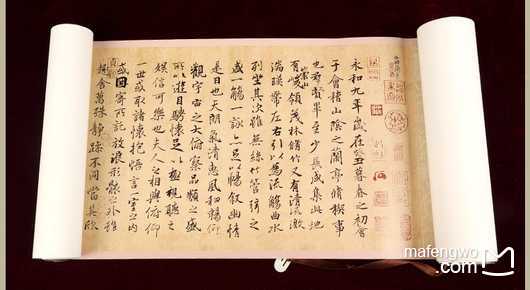 永和九年歲在癸丑暮春之初會
于會稽山陰之蘭亭脩稧事
也羣賢畢至少長咸集此地
有崇山峻領茂林脩竹又有清流激
湍暎帶左右引以為流觴曲水
列坐其次雖無絲竹管弦之
盛一觴一詠亦足以暢敘幽情
是日也天朗氣清惠風和暢仰
觀宇宙之大俯察品類之盛
所以遊目騁懷足以極視聽之
娛信可樂也夫人之相與俯仰
一世或取諸懷抱悟言一室之內
或因寄所託放浪形骸之外雖
趣舍萬殊靜躁不同當其欣
mafengwo
.com